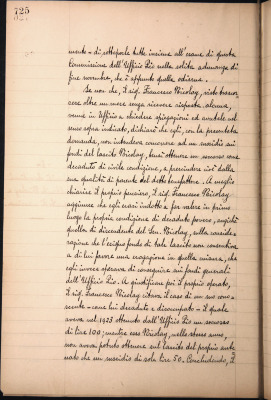 725
mente - di sottoporle tutte insieme all'esame di questa
Commissione dell'Ufficio Pio nella solita adunanza di
fine novembre, che è appunto quella odierna.
Se non che, il sig. Francesco Nicolay, visto trascor
rere oltre un mese senza ricevere risposta alcuna,
venne in Ufficio a chiedere spiegazioni ed avutele nel
senso sopra indicato, dichiarò che egli, con la presentata
domanda, non intendeva concorrere ad un sussidio sui
fondi del lascito Nicolay, bensì ottenere un soccorso come
decaduto di civile condizione, a prescindere cioè dalla
sua qualità di parente del detto benefattore. A meglio
chiarire il proprio pensiero, il sig. Francesco Nicolay
aggiunse che egli crasi indotto a far valere in primo
luogo la propria condizione di decaduto povero, anzichè
quella di discendente del Sen. Nicolay, nella conside
razione che l'esiguo fondo di tale lascito non consentiva
a di lui favore una erogazione in quella misura, che
egli invece sperava di conseguire sui fondi generali
dell'Ufficio Pio. A giustificare poi il proprio operato,
il sig. Francesco Nicolay citava il caso di un suo cono-
scente - come lui decaduto e disoccupato - il quale
aveva nel 1925 ottenuto dall'Ufficio Pio un soccorso
di lire 100; mentre esso Nicolay, nello stesso anno,
non aveva potuto ottenere sul lascito del proprio ante
nato che un sussidio di sole lire 50. Concludendo, il